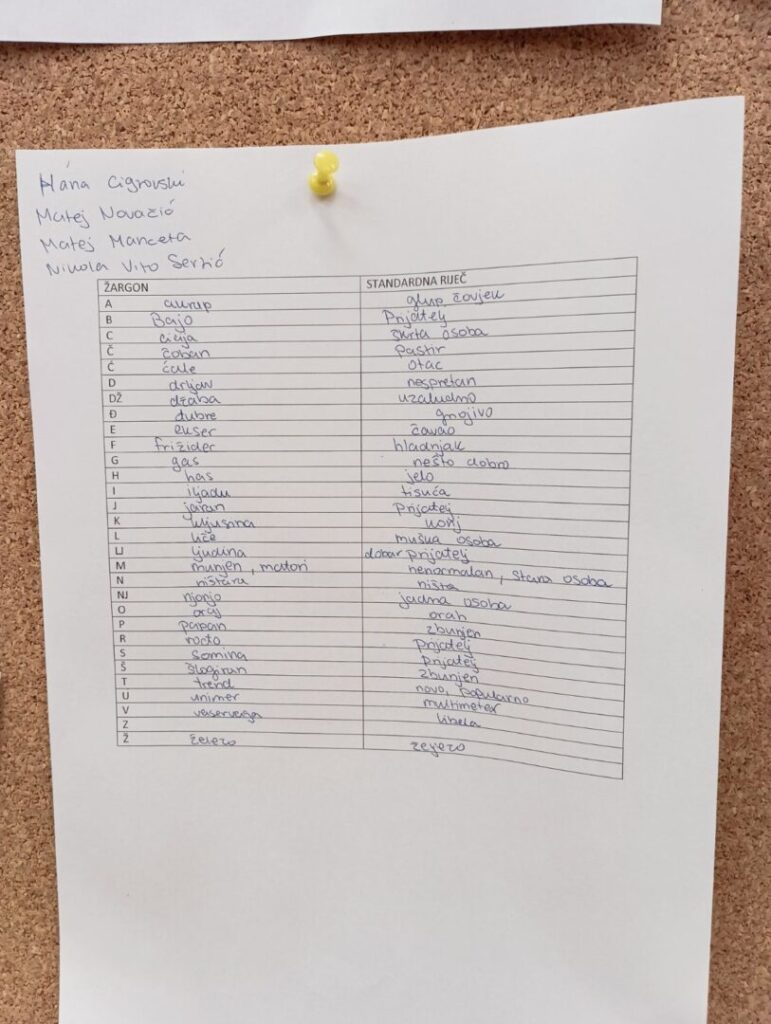 Cigrovski
Matej Novazić
Matej Manceta
Nikola Vito Seržić
ŽARGON STANDARDNA RIJEČ
A glup čovjek
B Bajo Prijatelj
C cicija škrta osoba
Č čoban pastir
Ć ćale otac
D drljav nespretan
DŽ džaba uzaludno
Đ đubre gnojivo
E ekser čavao
F frižider hladnjak
G gas nešto dobro
H has jelo
I iljadu tisuća
J jaran Prijatelj
K kljusina konj
L muška osoba
LJ ljudina dobar prijatelj
M munjen, matori nenormalan, stara osoba
N ništara ništa
NJ njonjo jadna osoba
O oraj orah
P papan zbunjen
R rođo Prijatelj
S Somina Prijatelj
Š šlogiran zbunjen
T trend novo, popularno
U unimer multimetar
V vaservaga libela
Z
Ž